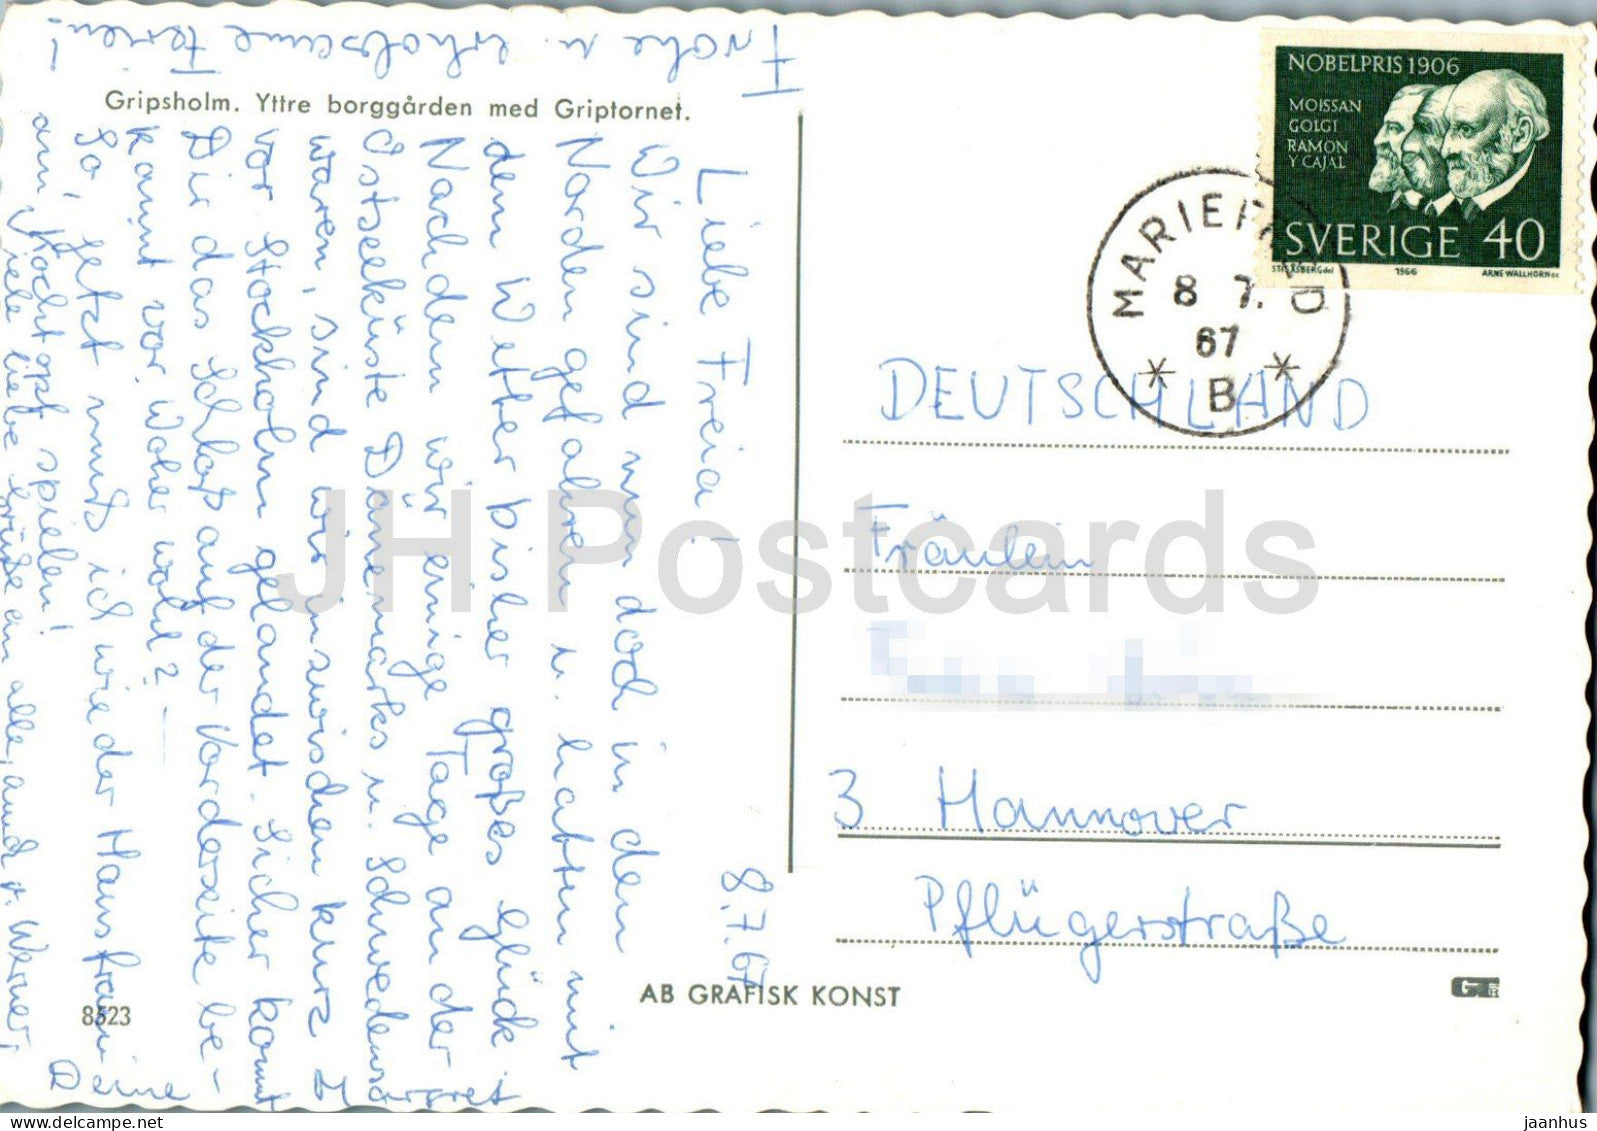 Frohe u. erholsame Ferien!
Gripsholm. Yttre borggården med Griptornet.
8.7.67
Liebe Freia!
Wir sind nun doch in den
Norden gefahren u. hatten mit
dem Wetter bisher großes Glück
Nachdem wir einige Tage an der
Ostseeküste Dänemarks u. Schwedens
waren, sind wir inzwischen kurz
vor Stockholm gelandet. Sicher kommt
Dir das Schloß auf der Vorderseite be-
kannt vor. Woher wohl? —
So, jetzt muß ich wieder Hausfrau
am Kochtopf spielen!
Viele liebe Grüße an alle, auch v. Werner,
Deine
8523
AB GRAFISK KONST
NOBELPRIS 1906
MOISSAN
GOLGI
RAMON
Y CAJAL
SVERIGE 40
STIG ÅSBERG del 1966 ARNE WALLHORN sc
MARIEFRED
8 7.
67
* B *
DEUTSCHLAND
Fräulein
3 Hannover
Pflügerstraße
JH Postcards
jaanhus